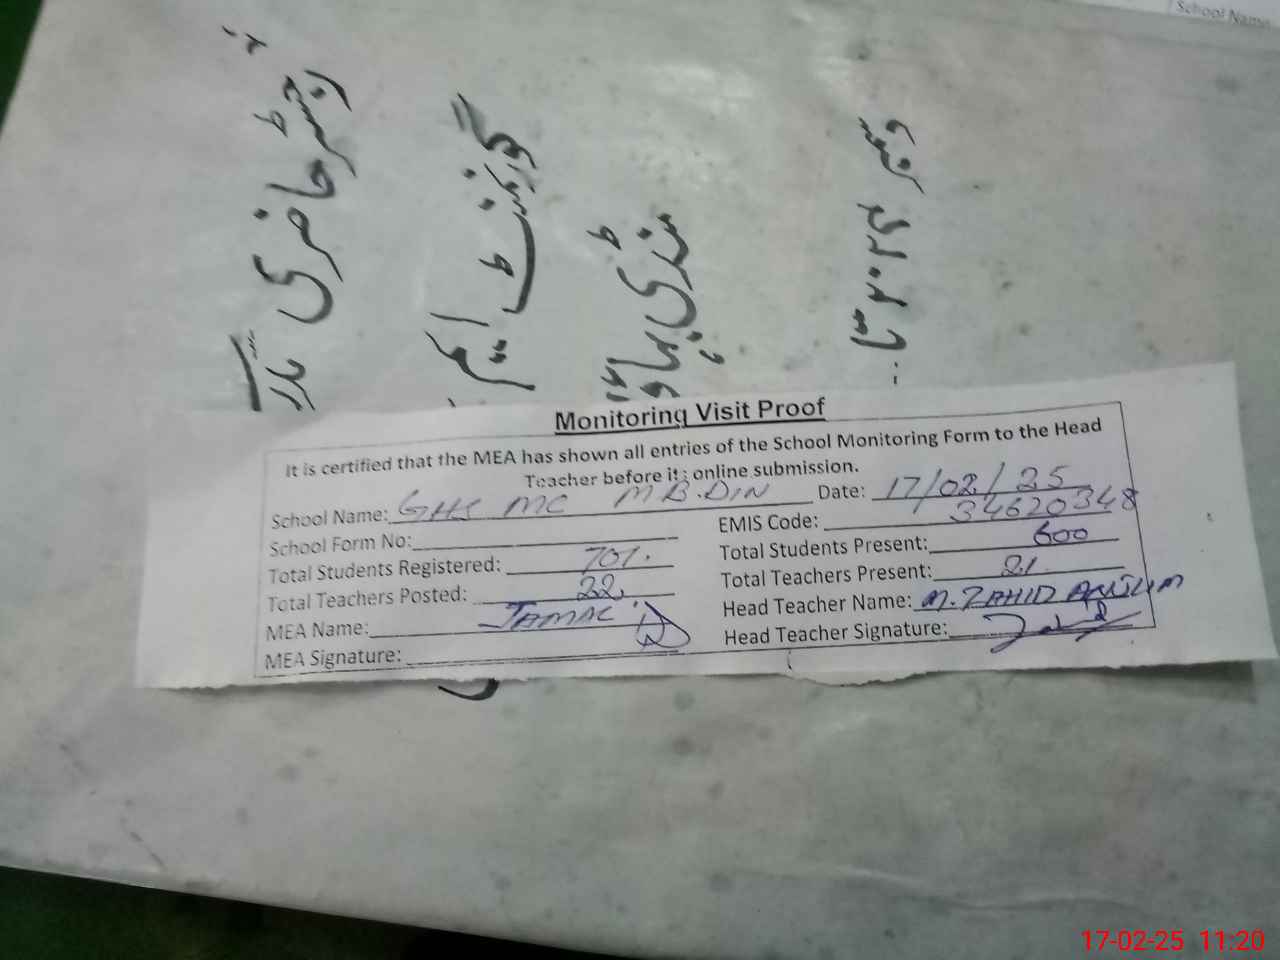 School Name
رجسٹر حاضری
گورنمنٹ ایم
منڈی بہاؤ
Monitoring Visit Proof
It is certified that the MEA has shown all entries of the School Monitoring Form to the Head
Teacher before its online submission.
School Name: GHS MC M B.DIN Date: 17/02/25
School Form No: EMIS Code: 34620348
Total Students Registered: 701. Total Students Present: 600
Total Teachers Posted: 22. Total Teachers Present: 21.
MEA Name: JAMAL Head Teacher Name: M. ZAHID ANJUM
MEA Signature: Head Teacher Signature:
17-02-25 11:20